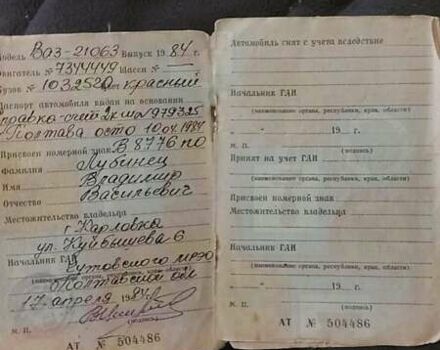 Модель Ваз-21063 Выпуск 1984 г.
Двигатель № 7344449 Шасси № —
Кузов № 1032520 цвет красный
Паспорт автомобиля выдан на основании
справка-счет
Полтава осто 10.04.1984
Присвоен номерной знак В 8776 ПО
Фамилия Лубинец
Имя Владимир
Отчество Васильевич
Местожительство владельца
г. Карловка
ул. Куйбышева 6
Начальник ГАИ
Чутовского МРЭО
(наименование органа,
Полтавской обл
17 апреля 1984 г.
М. П. (подпись)
АТ № 504486
Автомобиль снят с учета вследствие
Начальник ГАИ
(наименование органа, республики, края, области)
„ " 19 г.
М. П. (подпись)
Принят на учет ГАИ
(наименование органа, республики, края, области)
Присвоен номерной знак
Местожительство владельца
Начальник ГАИ
(наименование органа, республики, края, области)
„ " 19 г.
М. П. (подпись)
АТ № 504486